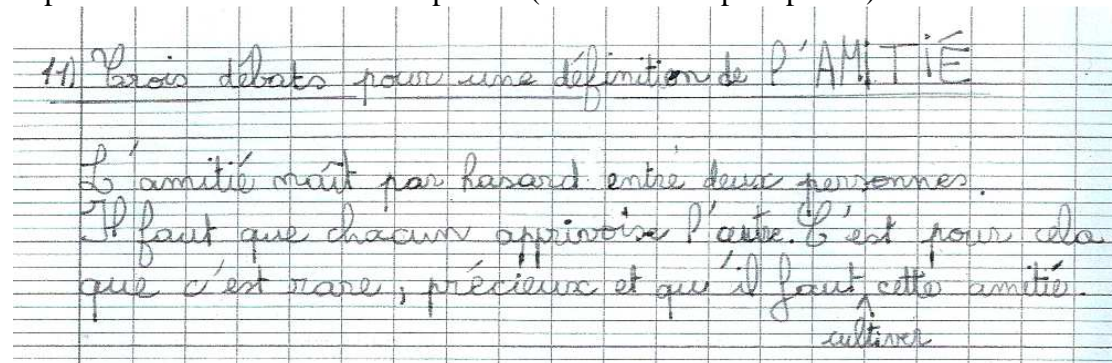 11) Trois débats pour une définition de l'AMITIÉ
L'amitié naît par hasard entre deux personnes.
Il faut que chacun apprivoise l'autre. C'est pour cela
que c'est rare, précieux et qu'il faut cette amitié.
cultiver